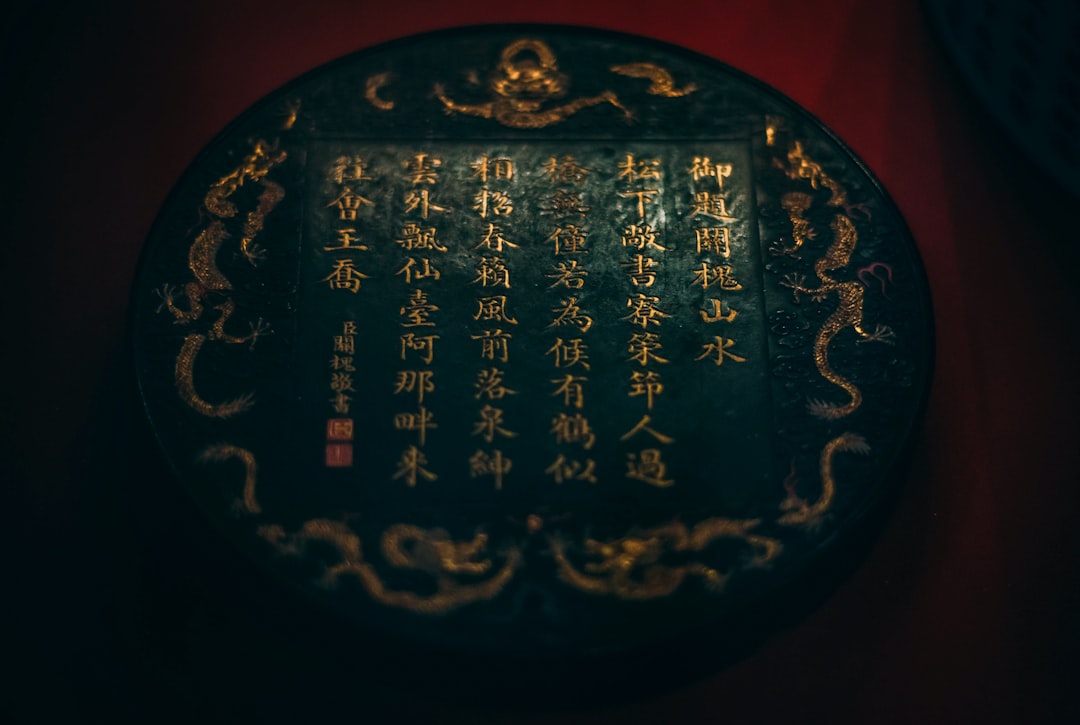 御題關槐山水
松下敞書寮策筇人過
橋無僮若為候有鶴似
相招春籟風前落泉紳
雲外飄仙臺阿那畔来
往會王喬
臣關槐敬書